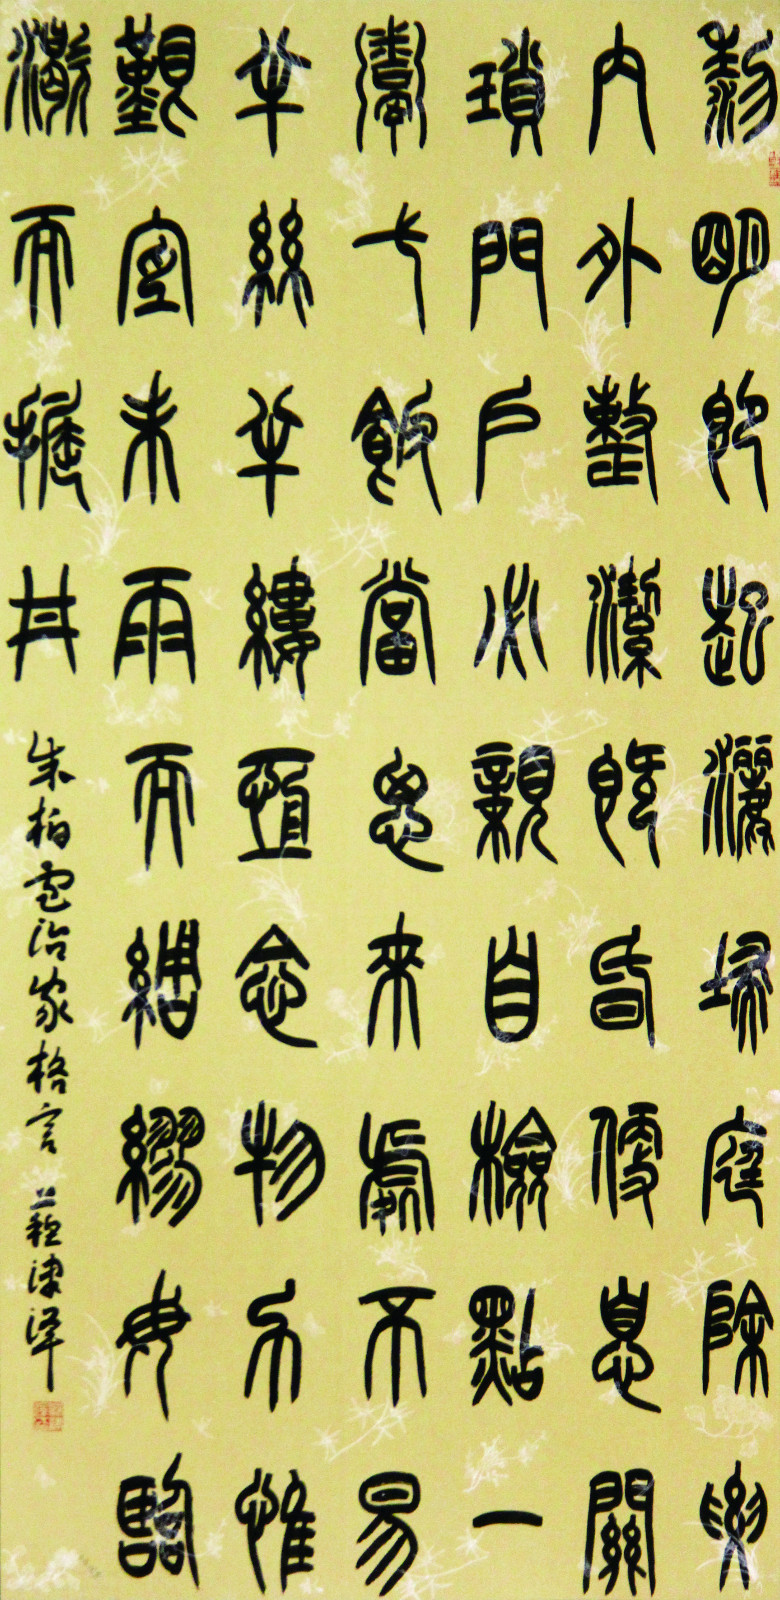 黎明即起灑埽庭除要
内外整潔既昏便息關
瑣門户必親自檢點一
粥弋飯當思來處不易
半絲半縷恆念物力惟
艱宜未雨而綢繆毋臨
渴而掘井
朱柏廬治家格言